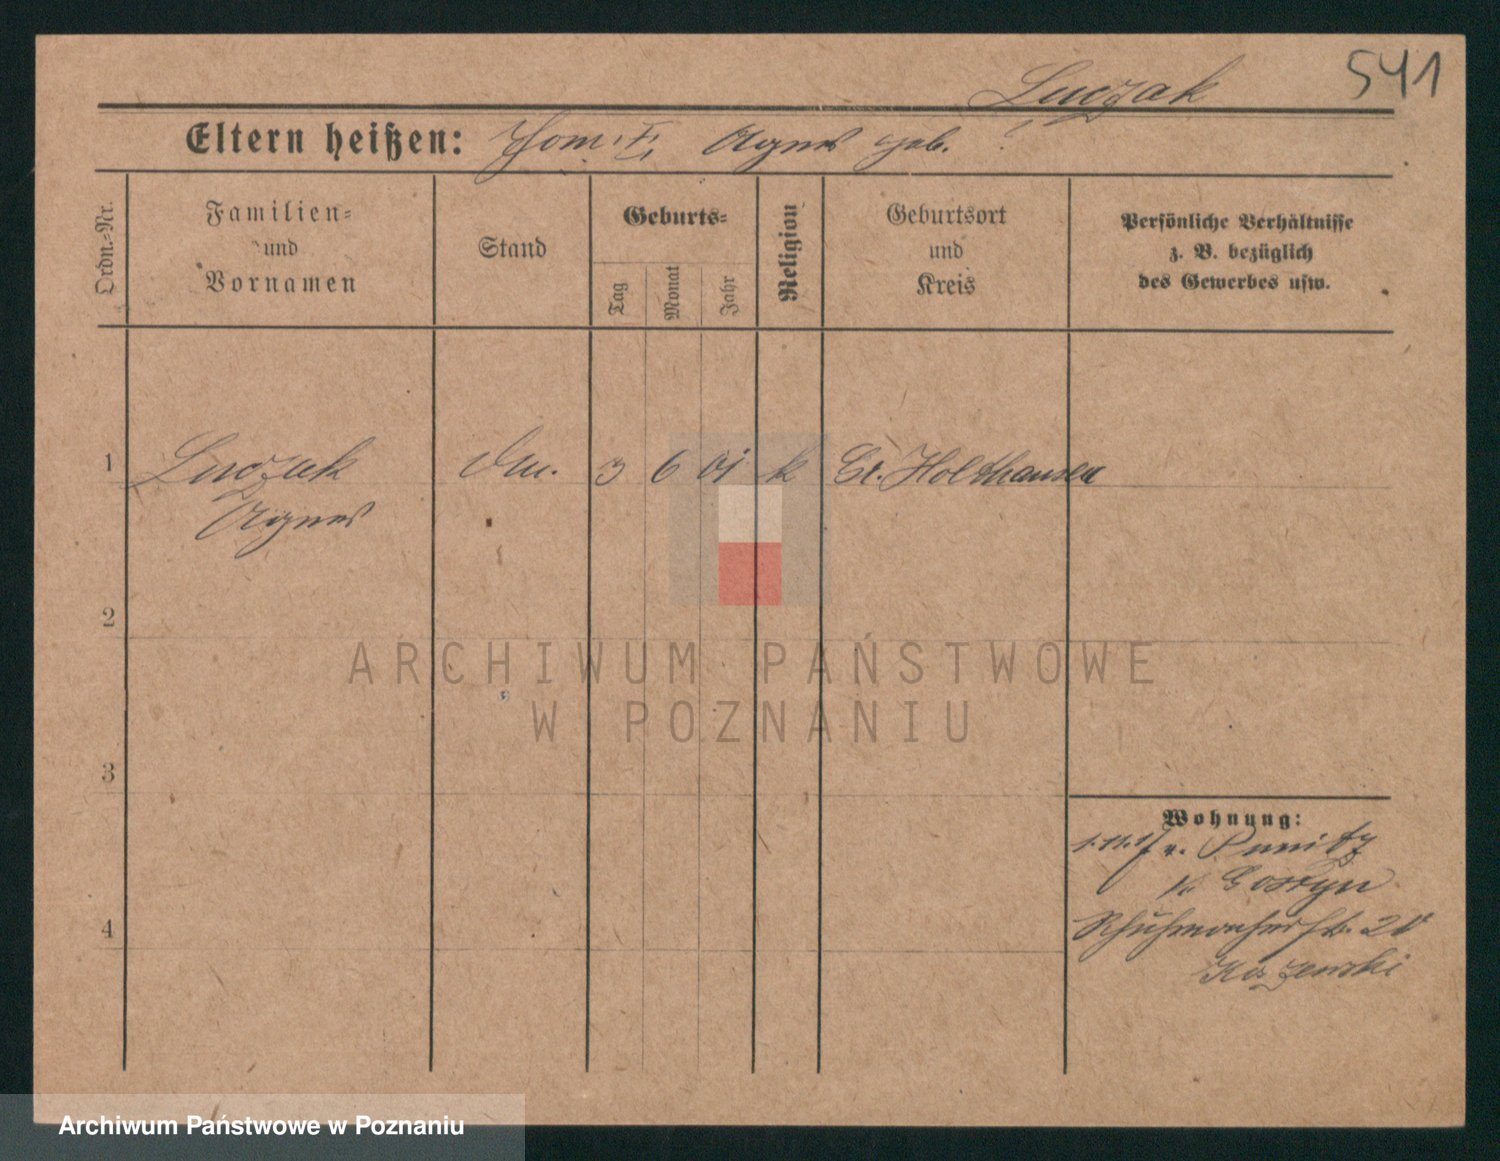 Luczak 541
Eltern heißen: Thom. Agnes geb. ?
Ordn.-Nr.
Familien-
und
Vornamen
Stand
Geburts-
Tag
Monat
Jahr
Religion
Geburtsort
und
Kreis
Persönliche Verhältnisse
z. B. bezüglich
des Gewerbes usw.
1 Luczak 3 6 01 k Gr. Holthausen
Agnes
2
3
4
Wohnung:
1.11.17 v. Punitz
Kr. Gostyn
Schuhmacherstr. 20
ARCHIWUM PAŃSTWOWE
W POZNANIU
Archiwum Państwowe w Poznaniu